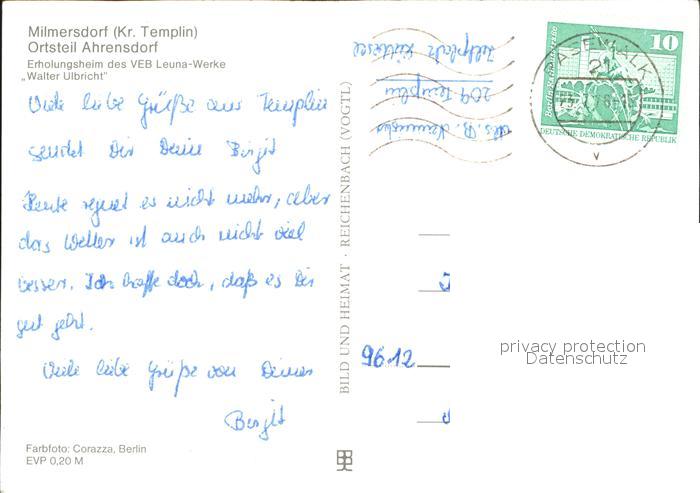 Milmersdorf (Kr. Templin)
Ortsteil Ahrensdorf
Erholungsheim des VEB Leuna-Werke
„Walter Ulbricht"
Viele liebe Grüße aus Templin
sendet Dir Deine Birgit
Heute regnet es nicht mehr, aber
das Wetter ist auch nicht viel
besser. Ich hoffe doch, daß es Dir
gut geht.
Viele liebe Grüße von Deiner
Birgit
Farbfoto: Corazza, Berlin
EVP 0,20 M
BILD UND HEIMAT · REICHENBACH (VOGTL)
Abs. B.
209 Templin
Zeltplatz
PASEWALK
21
10
DEUTSCHE DEMOKRATISCHE REPUBLIK
9612
privacy protection
Datenschutz